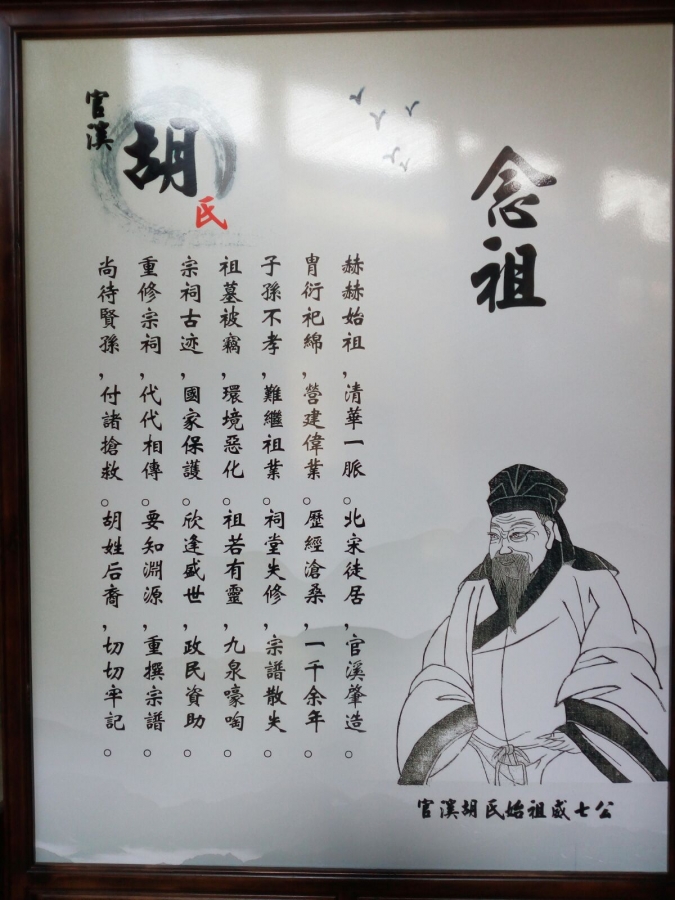 念祖
官溪
胡
氏
赫赫始祖，清華一脈。北宋徒居，官溪肇造。
胄衍祀綿，營建偉業。歷經滄桑，一千余年。
子孫不孝，難繼祖業。祠堂失修，宗譜散失。
祖墓被竊，環境惡化。祖若有靈，九泉嚎啕。
宗祠古迹，國家保護。欣逢盛世，政民資助。
重修宗祠，代代相傳。要知淵源，重撰宗譜。
尚待賢孫，付諸搶救。胡姓后裔，切切牢記。
官溪胡氏始祖威七公